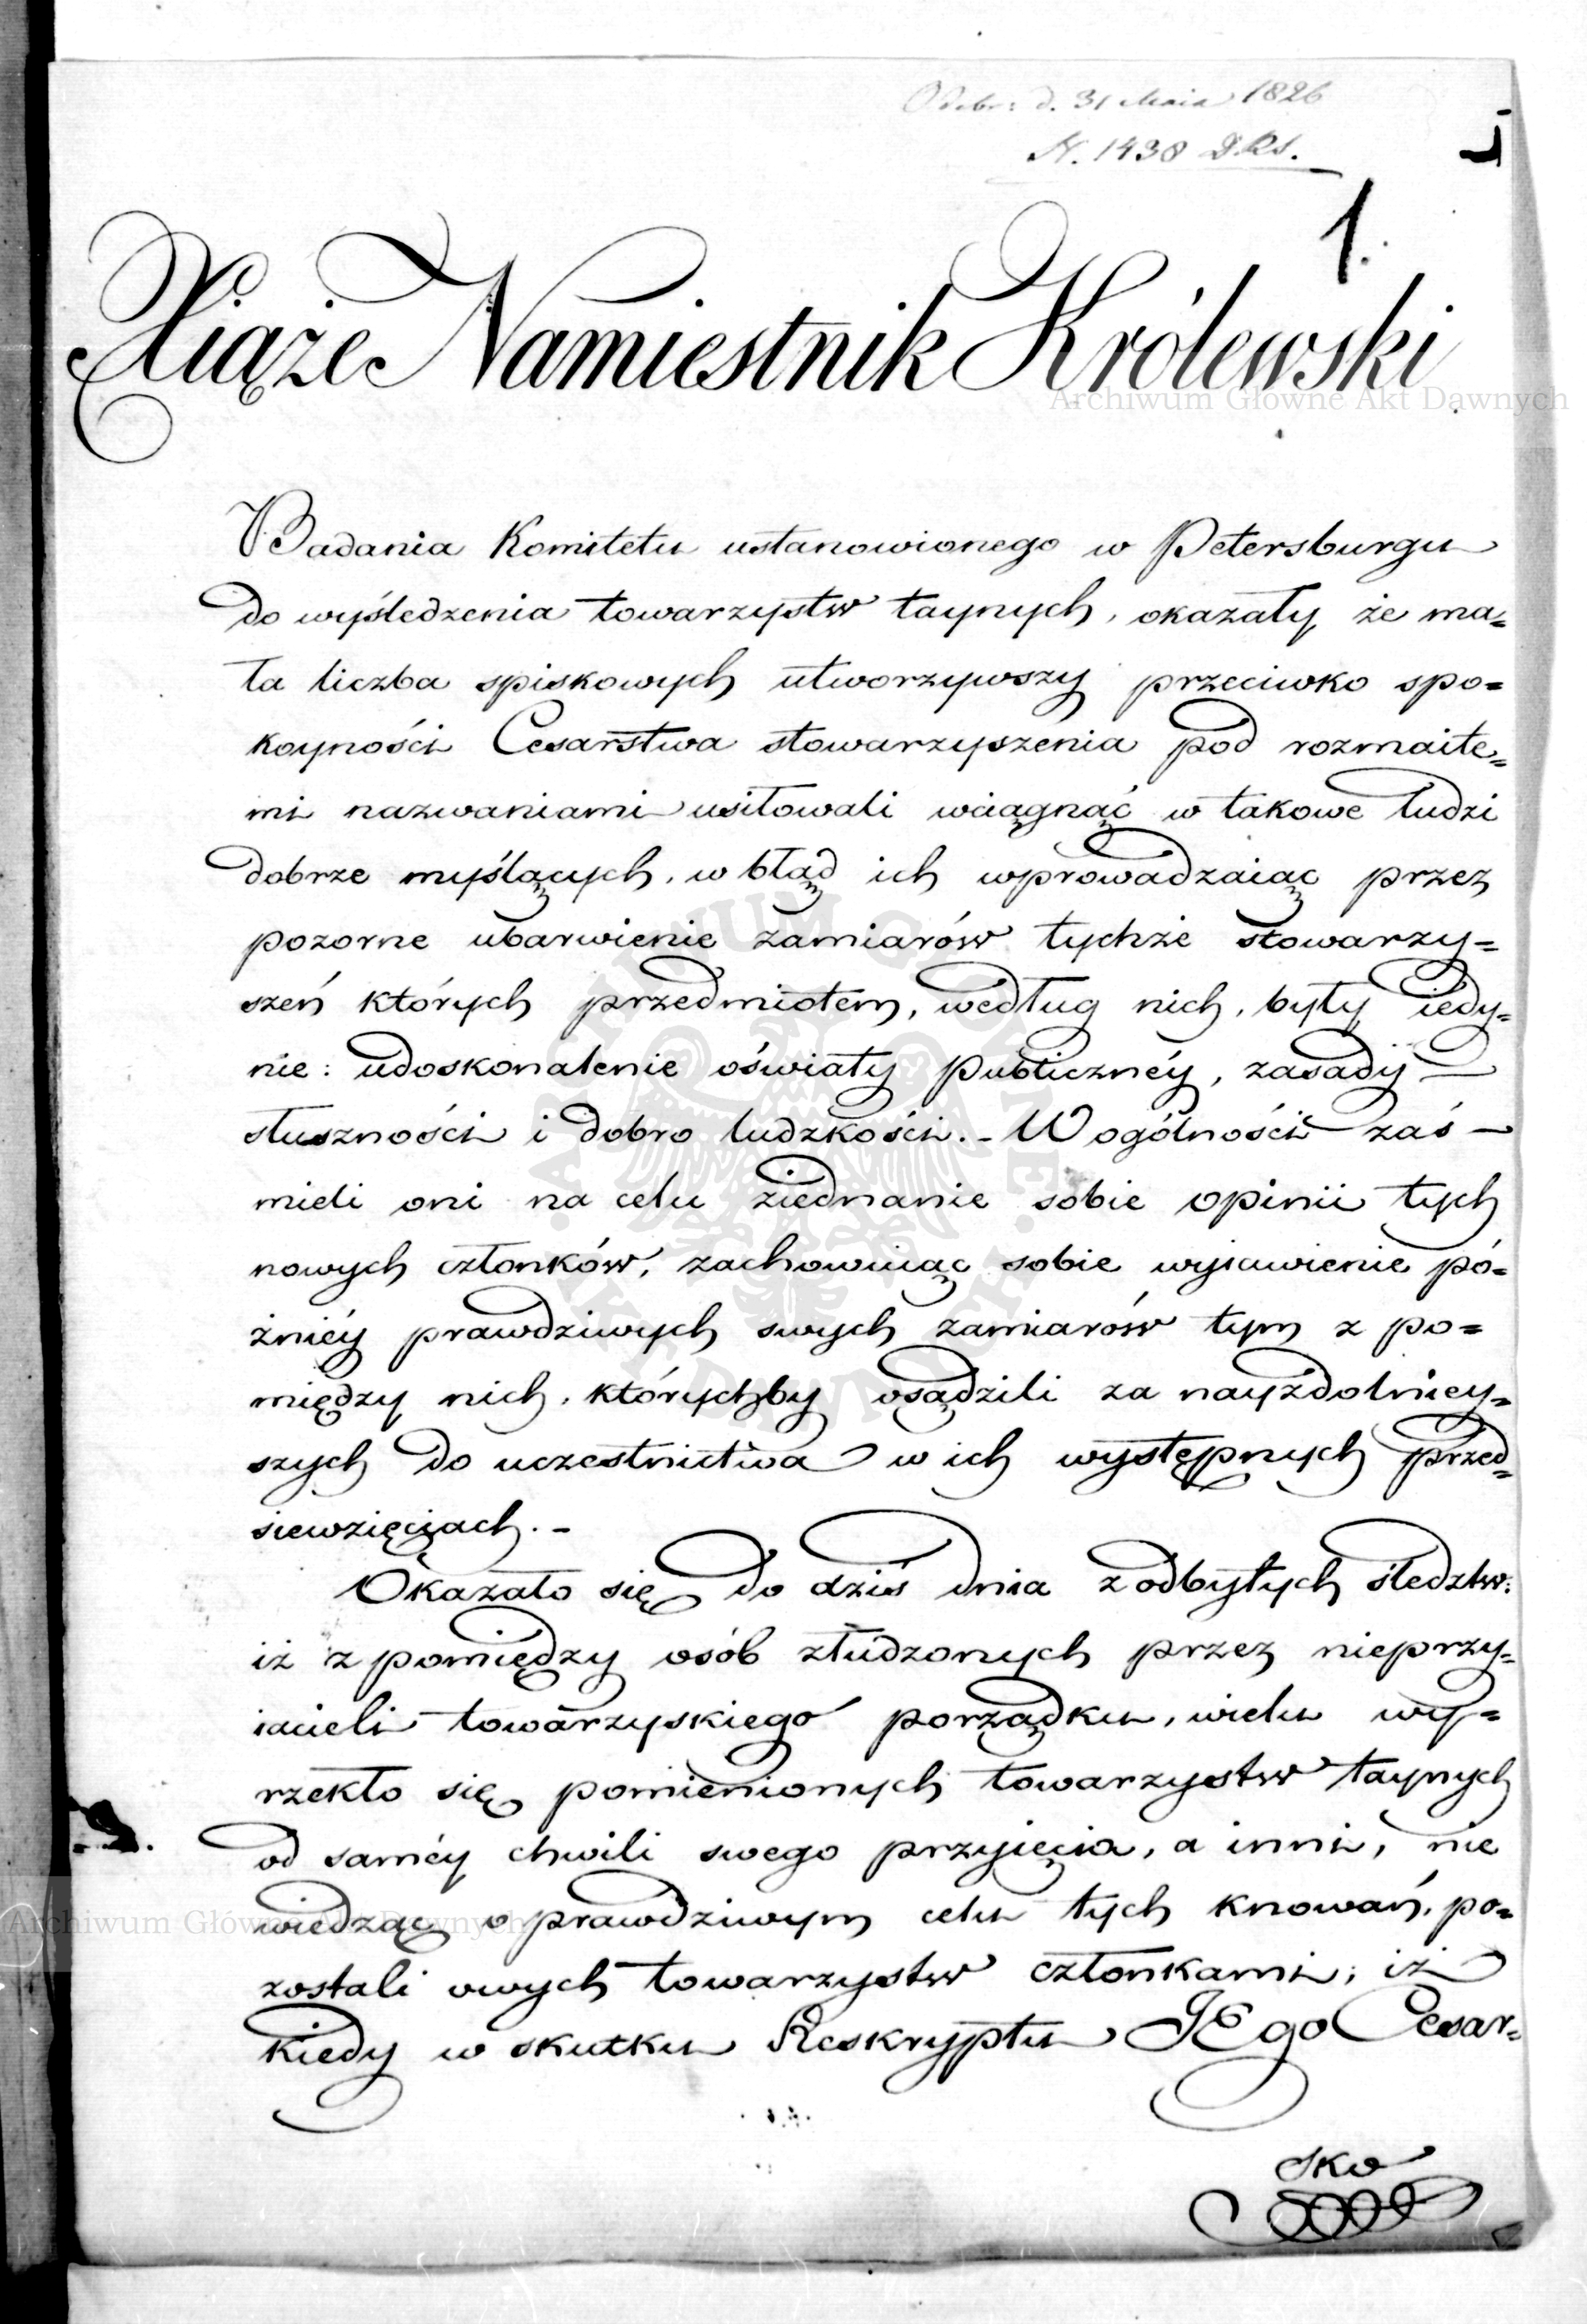 Odebr: d. 31 Maia 1826
N. 1438 D.Ks.
1.
Xiąże Namiestnik Królewski
Archiwum Główne Akt Dawnych
Badania Komitetu ustanowionego w Petersburgu
do wyśledzenia towarzystw taynych, okazały, że ma=
ła liczba spiskowych utworzywszy przeciwko spo=
koyności Cesarstwa stowarzyszenia pod rozmaite=
mi nazwaniami usiłowali wciągnąć w takowe ludzi
dobrze myślących, w błąd ich wprowadzaiąc przez
pozorne ubarwienie zamiarów tychże stowarzy=
szeń których przedmiotem, według nich, były iedy=
nie: udoskonalenie oświaty publicznéy, zasady –
słuszności i dobro ludzkości. – W ogólności zaś –
mieli oni na celu ziednanie sobie opinii tych
nowych członków, zachowuiąc sobie wyiawienie pó=
źniéy prawdziwych swych zamiarów tym z po=
między nich, którychby osądzili za nayzdolniey=
szych do uczestnictwa w ich występnych przed=
siewzięciach. –
Okazało się do dziś dnia z odbytych śledztw:
iż z pomiędzy osób złudzonych przez nieprzy=
iacieli towarzyskiego porządku, wielu wy=
rzekło się pomienionych towarzystw taynych
od saméy chwili swego przyięcia, a inni, nie
wiedząc o prawdziwym celu tych knowań, po=
zostali owych towarzystw członkami; iż
Archiwum Główne Akt Dawnych
kiedy w skutku Reskryptu JEgo Cesar=
sko
ARCHIWUM GŁÓWNE · AKT DAWNYCH ·